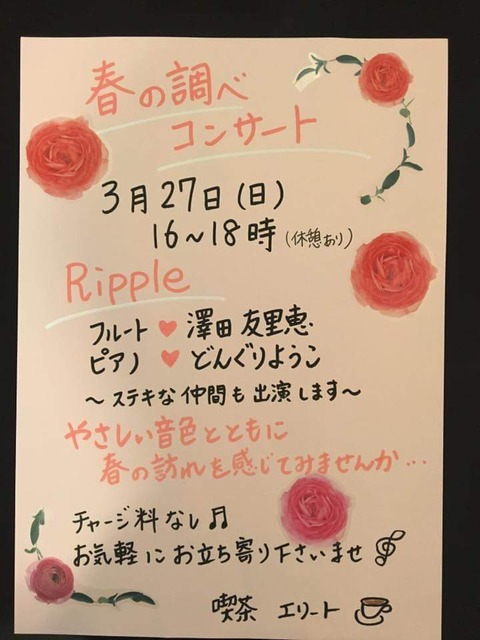 春の調べ
コンサート
3月27日(日)
16~18時(休憩あり)
Ripple
フルート♥澤田友里恵
ピアノ♥どんぐりようこ
~ステキな仲間も出演します~
やさしい音色とともに
春の訪れを感じてみませんか…
チャージ料なし♬
お気軽にお立ち寄り下さいませ
喫茶 エリート